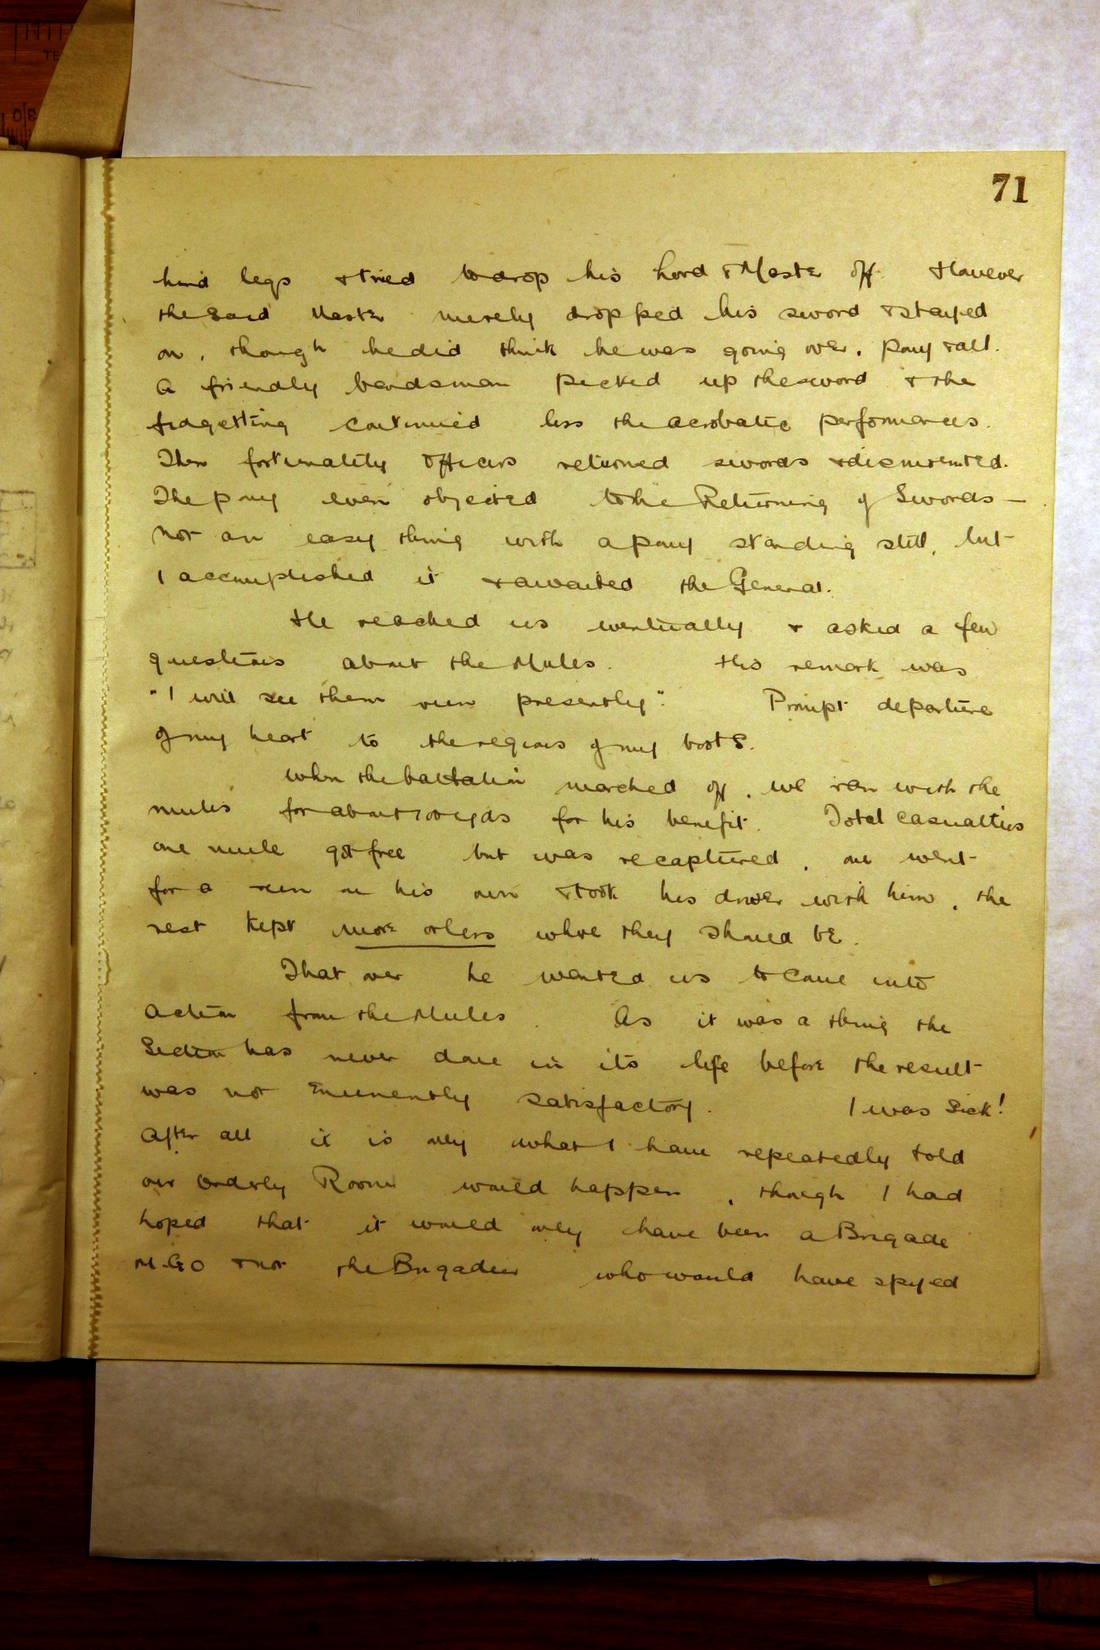 71
hind legs & tried to drop his Lord & Master off. However
the said Master merely dropped his sword & stayed
on, though he did think he was going over, pony & all.
A friendly bandsman picked up the sword & the
fidgetting continued less the acrobatic performances.
Then fortunately Officers returned swords & dismounted.
The pony even objected to the Returning of Swords —
not an easy thing with a pony standing still, but
I accomplished it & awaited the General.
He reached us eventually & asked a few
questions about the Mules. His remark was
"I will see them run presently." Prompt departure
of my heart to the regions of my boots.
When the battalion marched off, we ran with the
mules for about 100 yds for his benefit. Total casualties
one mule got free but was recaptured, one went
for a run on his own & took his driver with him, the
rest kept more or less where they should be.
That over he wanted us to come into
action from the Mules. As it was a thing the
Section has never done in its life before the result
was not eminently satisfactory. I was sick!
After all it is only what I have repeatedly told
our Orderly Room would happen, though I had
hoped that it would only have been a Brigade
M.G.O & not the Brigadier who would have spyed